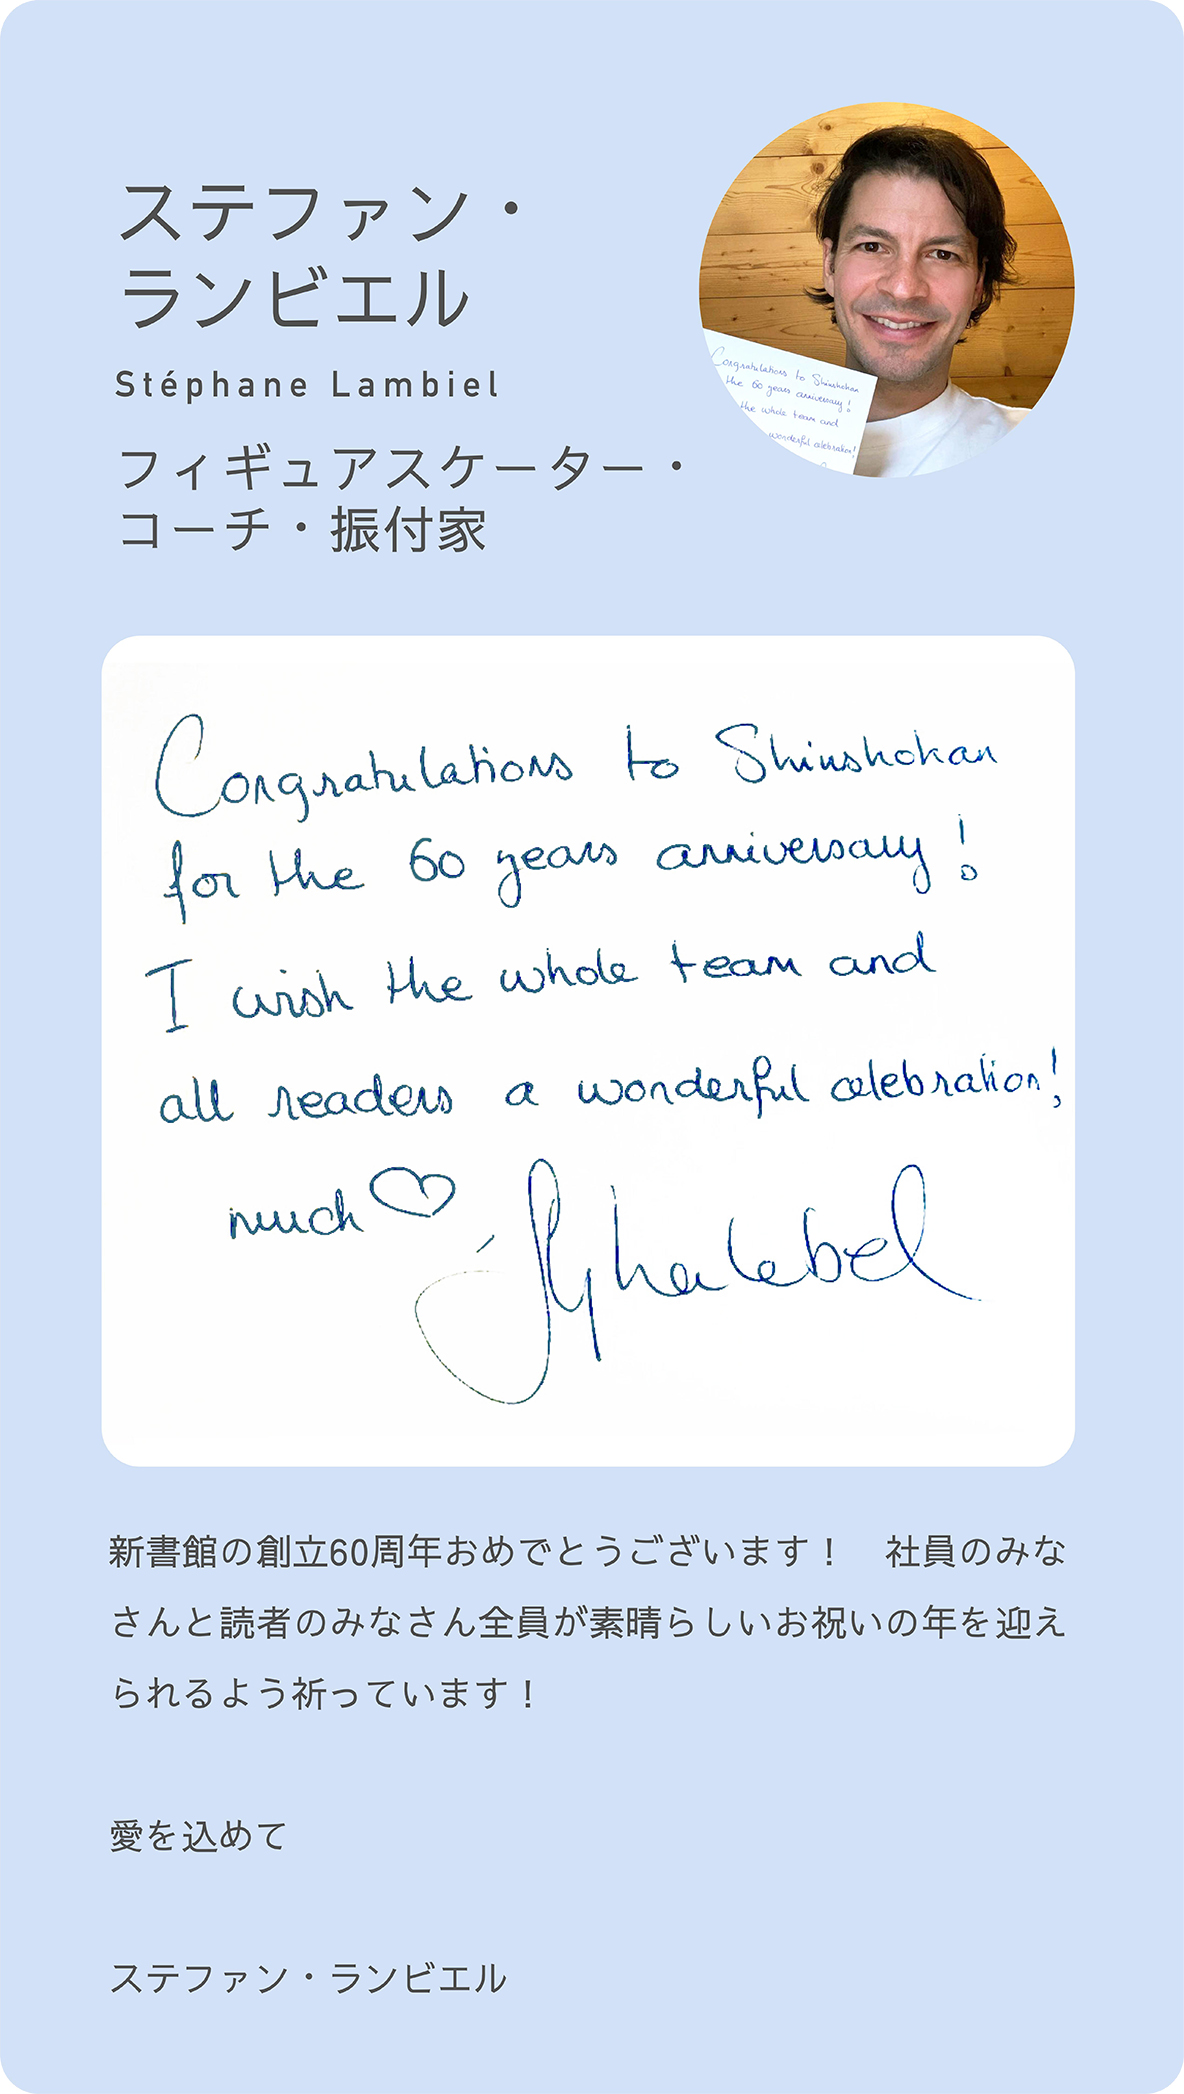 ステファン・
ランビエル
Stéphane Lambiel
フィギュアスケーター・
コーチ・振付家
Congratulations to Shinshokan
the 60 years anniversary!
the whole team and
wonderful celebration!
Congratulations to Shinshokan
for the 60 years anniversary!
I wish the whole team and
all readers a wonderful celebration!
much ♡
新書館の創立60周年おめでとうございます！　社員のみな
さんと読者のみなさん全員が素晴らしいお祝いの年を迎え
られるよう祈っています！
愛を込めて
ステファン・ランビエル